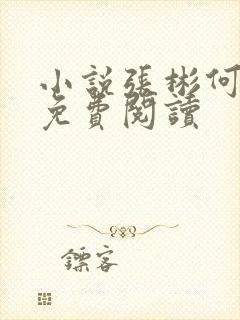 小說張彬何
免費閱讀
鏢客